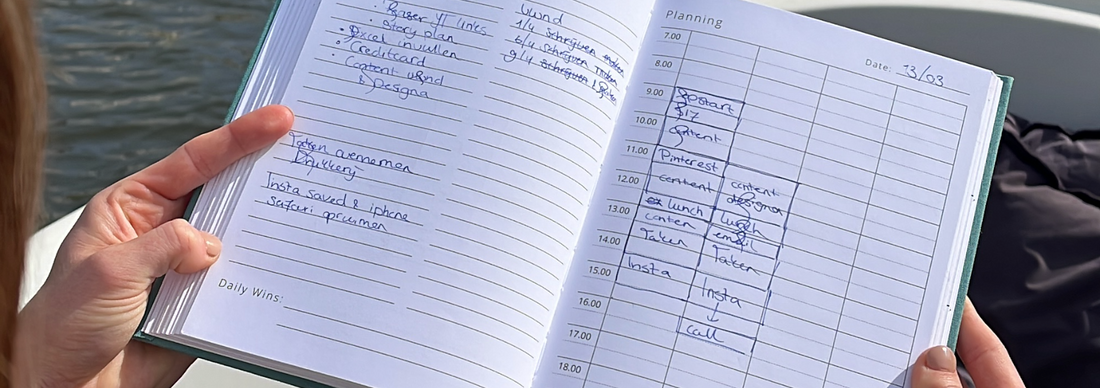 Story plan
• Excel invullen
• Creditcard
Content
& Designa
Taken overnemen
Drukkerij
Insta saved & iphone
Safari opruimen
Daily Wins:
1/4 Schrijven
Schrijven
9/4 Schrijven
Planning
Date: 13/03
7.00
8.00
9.00 Opstart
10.00 content
11.00 Pinterest
12.00 content content
designa
lunch lunch
13.00 conten email
14.00 Taken Taken
15.00 Insta Insta
16.00
17.00 call
18.00